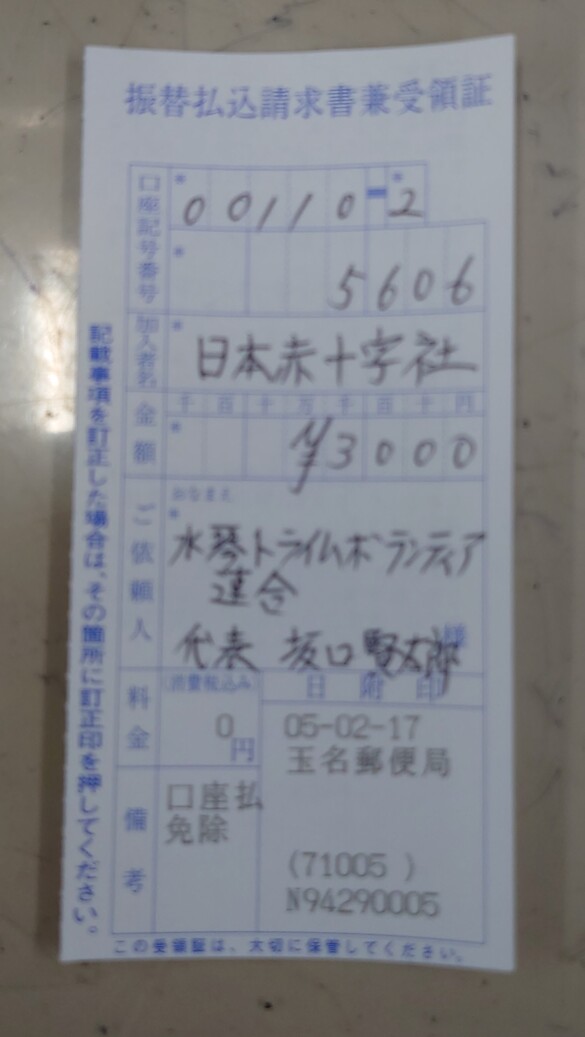 振替払込請求書兼受領証
口座記号番号
00110-2
5606
加入者名
日本赤十字社
金額
千 百 十 万 千 百 十 円
¥3000
ご依頼人
おなまえ
水琴トライムボランティア
連合
代表 坂口賢太郎
様
料金
(消費税込み)
0
円
日附印
05-02-17
玉名郵便局
備考
口座払
免除
(71005 )
N94290005
記載事項を訂正した場合は、その箇所に訂正印を押してください。
この受領証は、大切に保管してください。